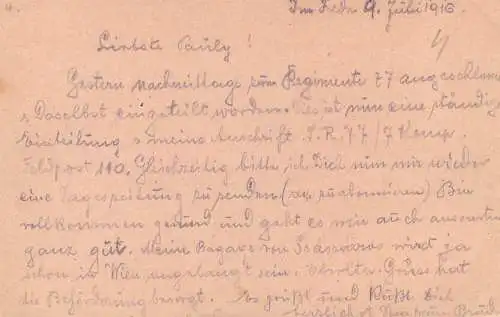 Im Felde 9. Juli 1916.
Liebste Pauly!
Gestern nachmittags zum Regimente 77 angeschlossen
u Daselbst eingeteilt worden. Dies ist nun eine ständige
Einteilung u meine Anschrift I. R. 77/7 Komp.
Feldpost 110. Gleichzeitig bitte ich Dich nun mir wieder
eine Tageszeitung zu senden (zu abonnieren) Bin
vollkommen gesund und geht es mir auch ansonsten
ganz gut. Meine Bagage von wird ja
schon in Wien angelangt sein. hat
die Beförderung besorgt. Es grüßt und küßt Dich
herzlich Dein Brud